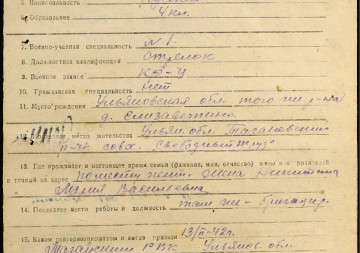 5. Национальность
6. Образование 4 кл.
7. Военно-учетная специальность № 1.
8. Должностная квалификация Стрелок
9. Военное звание Кр-ц
10. Гражданская специальность нет
11. Место рождения Ульяновская обл. того же р-на
д. Елизаветинка
место жительства Ульян. обл.
р-н совх. Свободный труд
13. Где проживает в настоящее время семья (фамилия, имя, отчество) жены или родителей
и точный их адрес жена Никитина
Мария Васильевна
14. Последнее место работы и должность там же - бригадир.
15. Каким райвоенкоматом и когда призван 13/II-42г.
РВК Ульянов. обл.